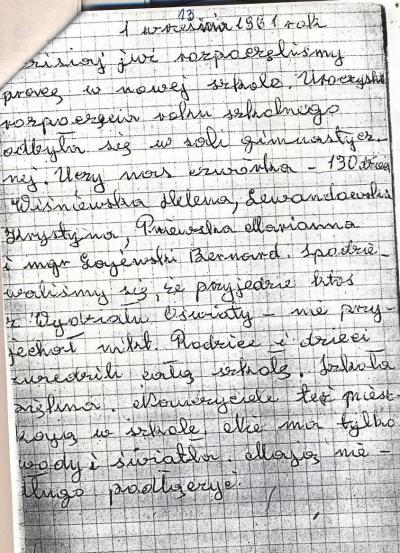 13
1 września 1961 roku
Dzisiaj już rozpoczęliśmy
pracę w nowej szkole. Uroczyste
rozpoczęcie roku szkolnego
odbyło się w sali gimnastycz-
nej. Uczy nas czwórka - 130 dzieci
Wiśniewska Helena, Lewandowska
Krystyna, Pniewska Marianna
i mgr Łojewski Bernard. Spodzie-
waliśmy się, że przyjedzie ktoś
z Wydziału Oświaty - nie przy-
jechał nikt. Rodzice i dzieci
zwiedzili całą szkołę. Szkoła
piękna. Nauczyciele też miesz-
kają w szkole. Nie ma tylko
wody i światła. Mają nie -
długo podłączyć.